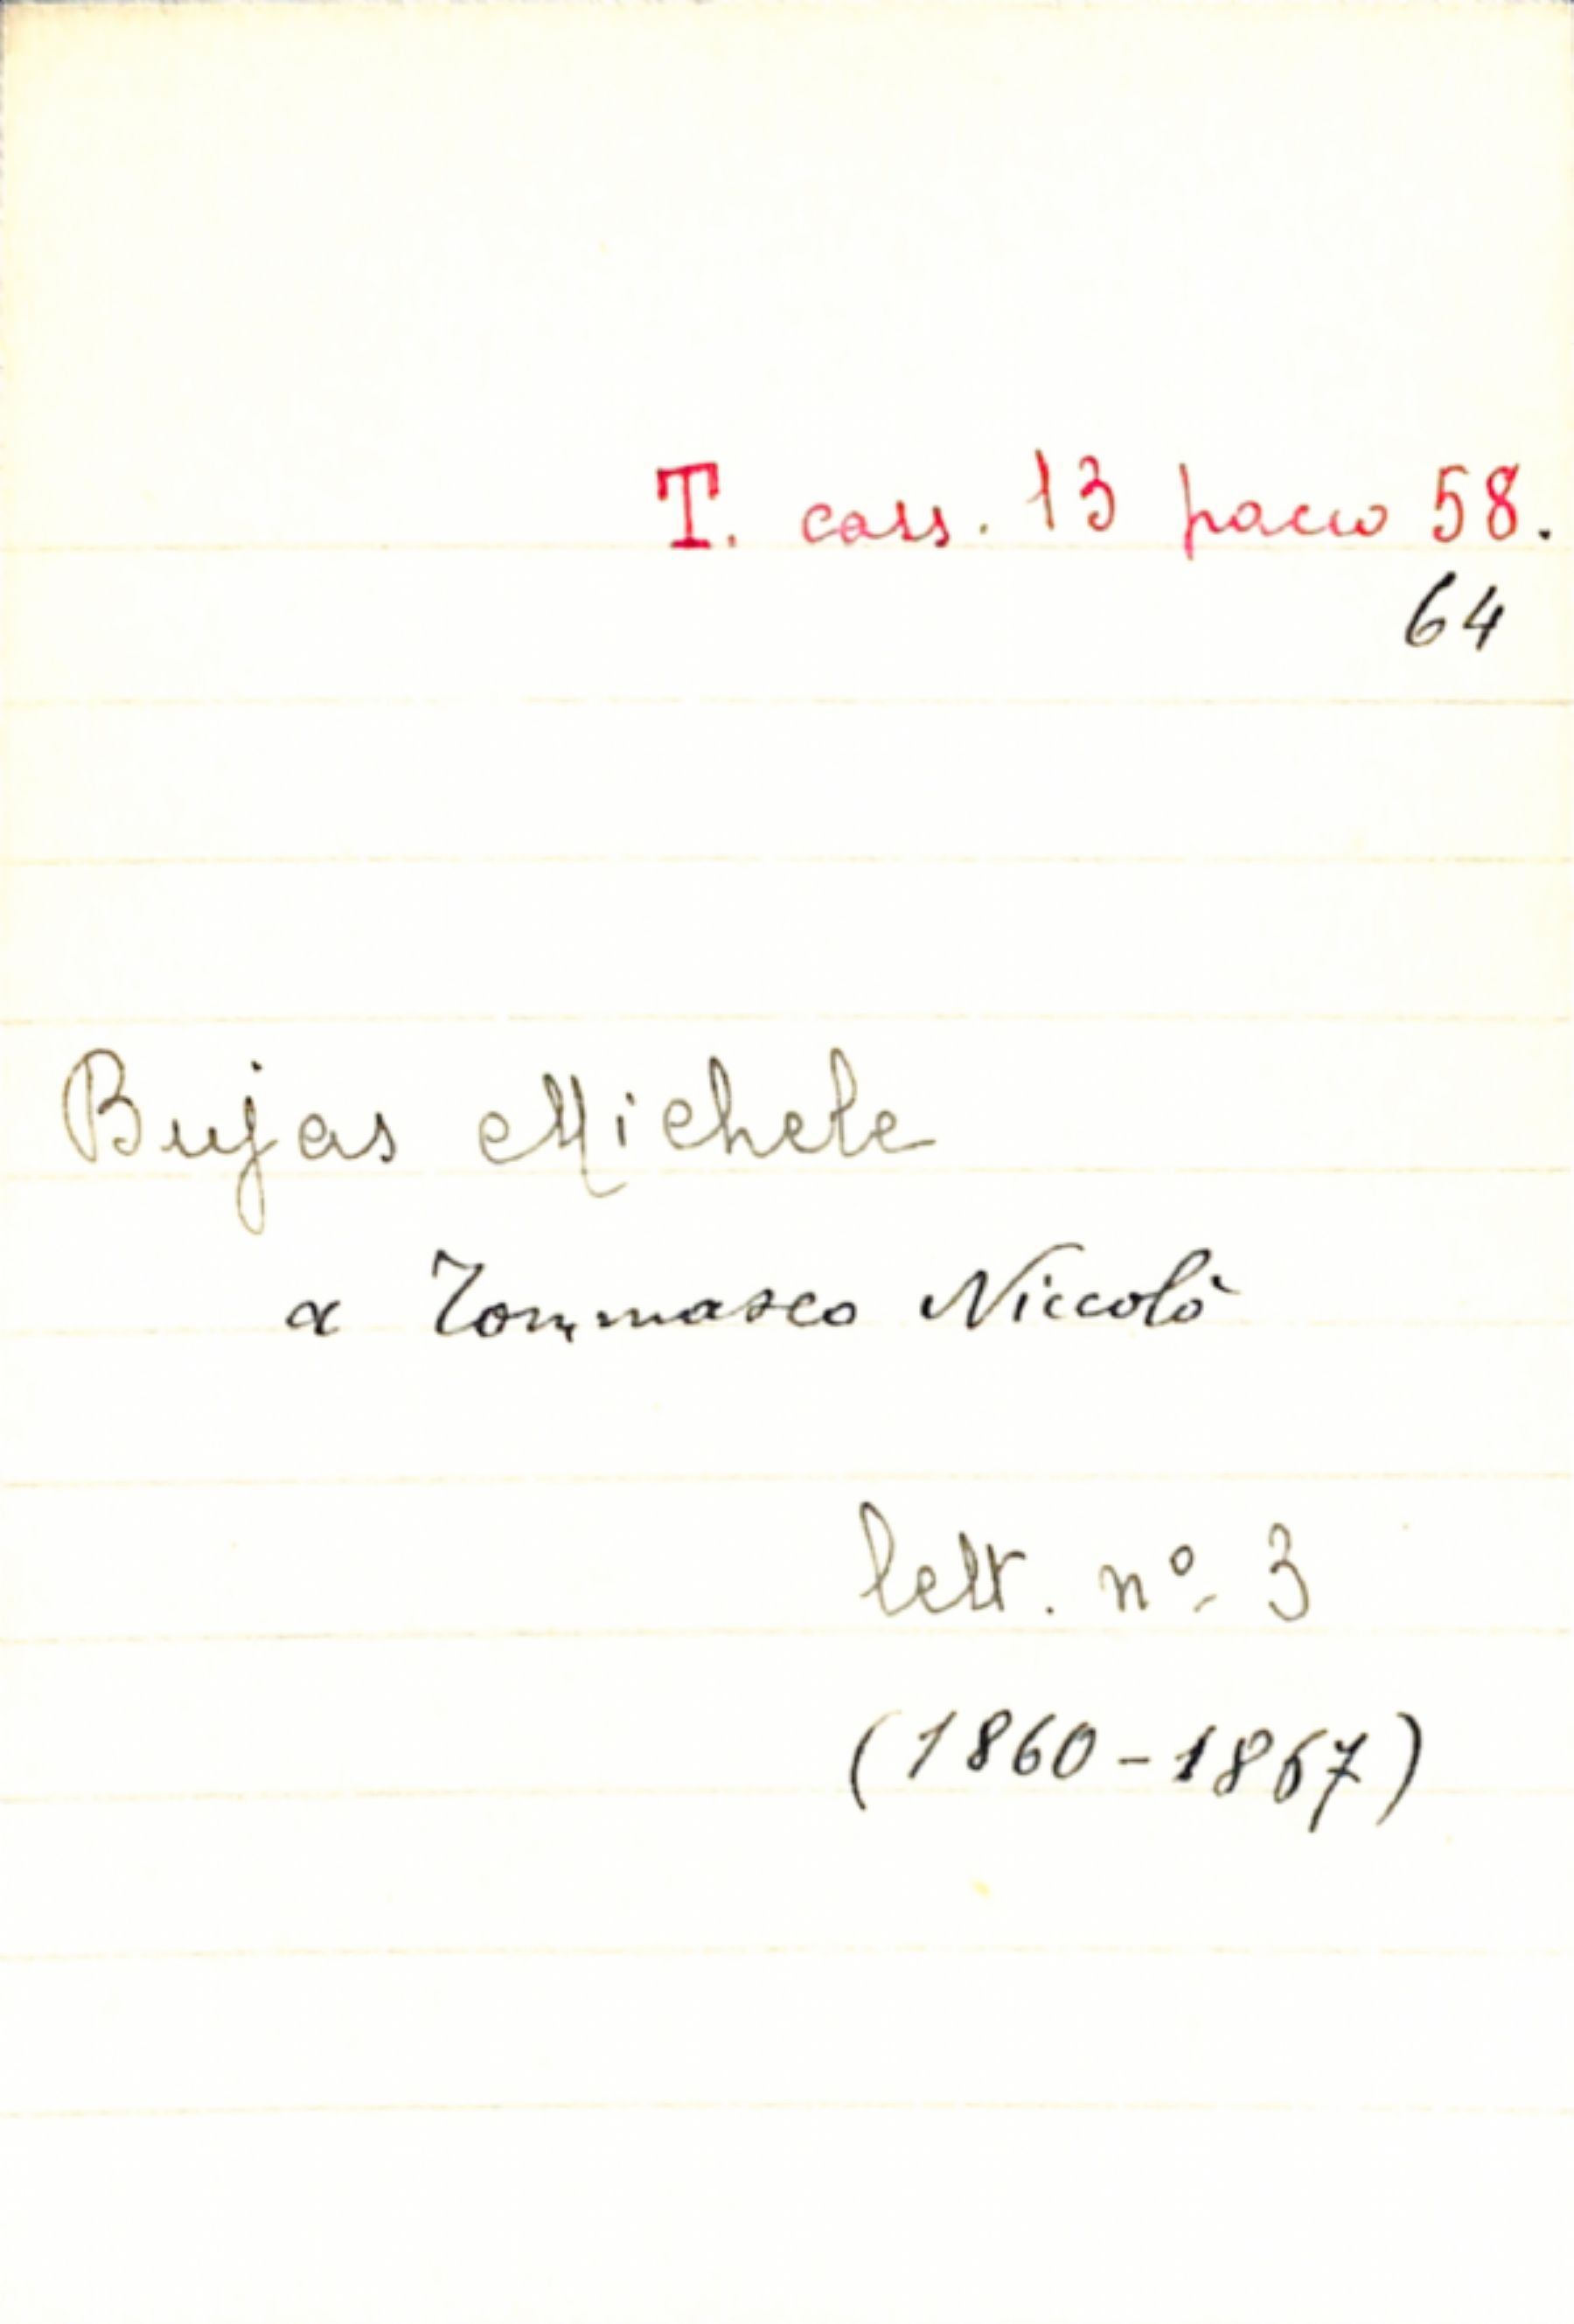 T. cass. 13 pacco 58.
64
Bujas Michele
a Tommaseo Niccolò
lett. nº 3
(1860-1867)